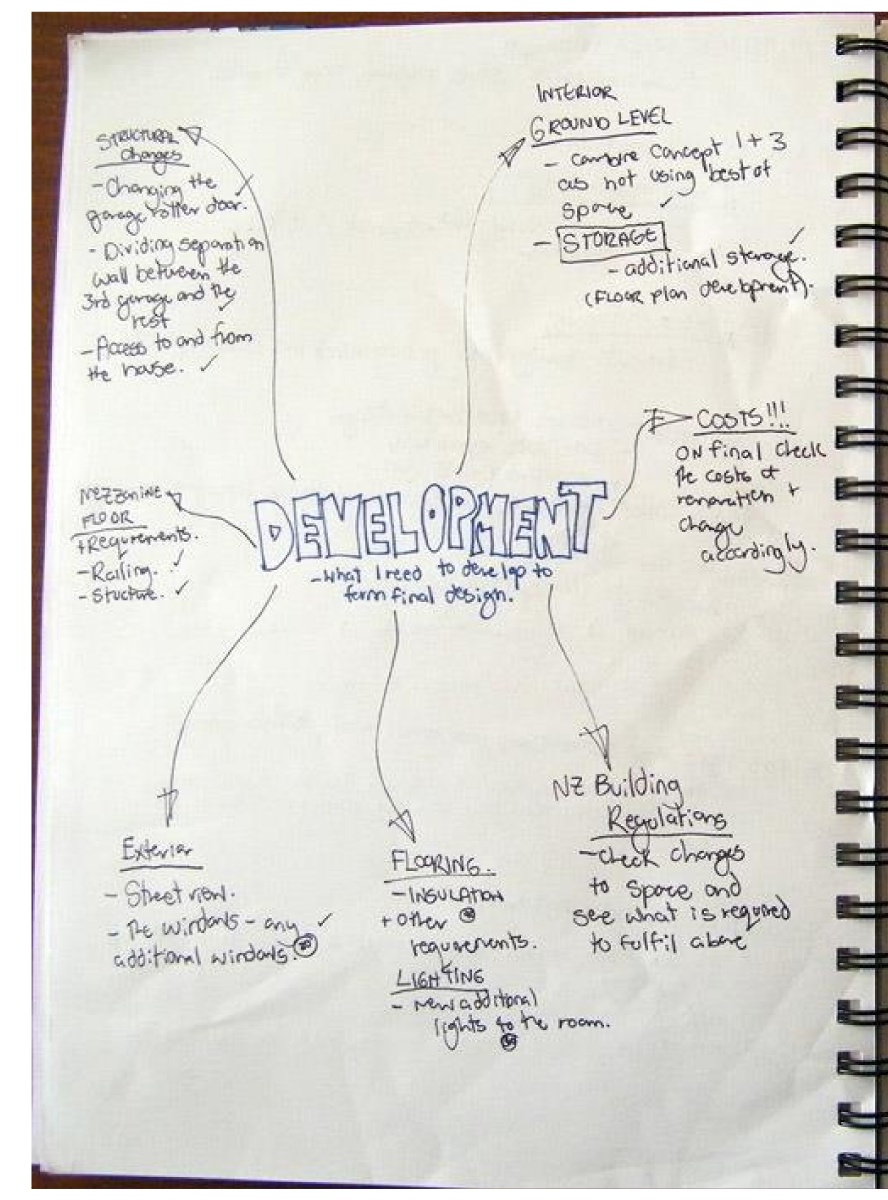 STRUCTURAL
Changes
- Changing the
garage roller door.
- Dividing separation
wall between the
3rd garage and the
rest
- Access to and from
the house.
INTERIOR
GROUND LEVEL
- combine concept 1 + 3
as not using best of
space
- STORAGE
- additional storage.
(FLOOR plan development).
COSTS!!!
ON final check
the costs of
renovation +
change
accordingly.
MEZZANINE
FLOOR
+ Requirements.
- Railing.
- Stucture.
DEVELOPMENT
- What I need to develop to
form final design.
Exterior
- Street view.
- The windows - any
additional windows.
FLOORING.
- INSULATION
+ other
requirements.
LIGHTING
- new additional
lights to the room.
NZ Building
Regulations
- check changes
to space and
see what is required
to fulfil above